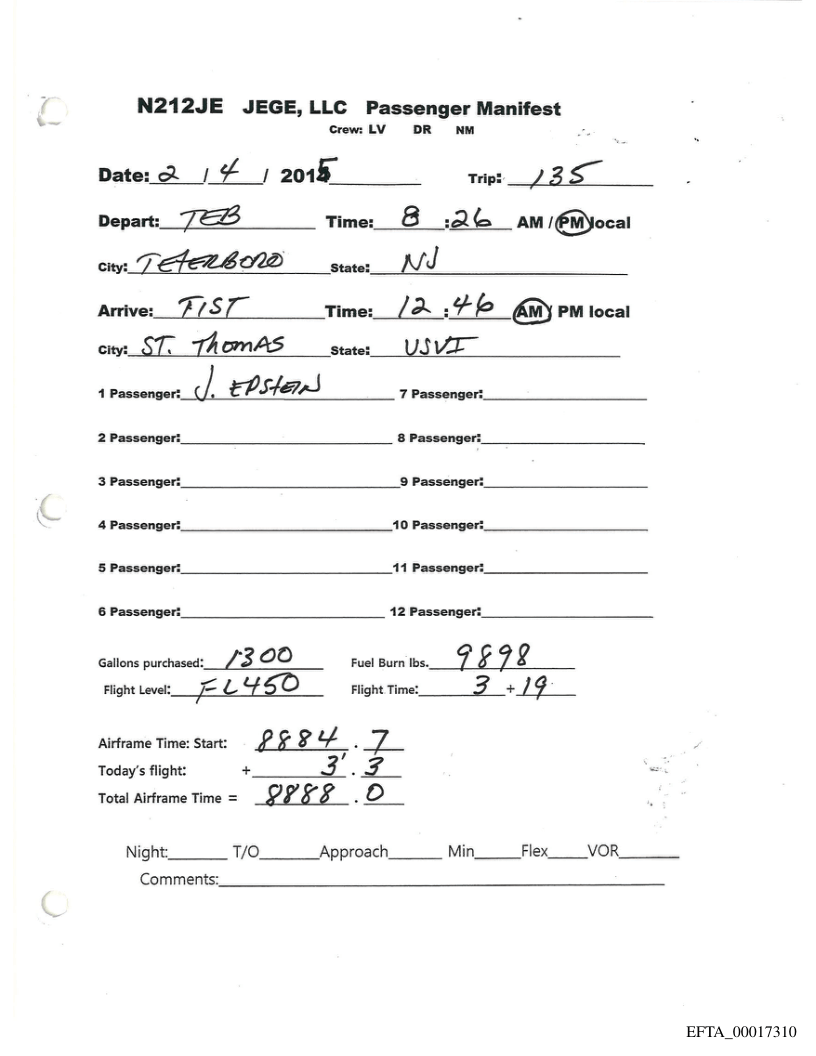 N212JE JEGE, LLC Passenger Manifest
Crew: LV DR NM
Date: 2 / 4 / 2015 Trip: 135
Depart: TEB Time: 8 :26 AM / PM local
City: TETERBORO State: NJ
Arrive: TIST Time: 12 :46 AM / PM local
City: ST. THOMAS State: USVI
1 Passenger: J. EPSTEIN 7 Passenger:
2 Passenger: 8 Passenger:
3 Passenger: 9 Passenger:
4 Passenger: 10 Passenger:
5 Passenger: 11 Passenger:
6 Passenger: 12 Passenger:
Gallons purchased: 1300 Fuel Burn lbs. 9898
Flight Level: FL450 Flight Time: 3 + 19
Airframe Time: Start: 8884 . 7
Today's flight: + 3 . 3
Total Airframe Time = 8888 . 0
Night: T/O Approach Min Flex VOR
Comments:
EFTA_00017310